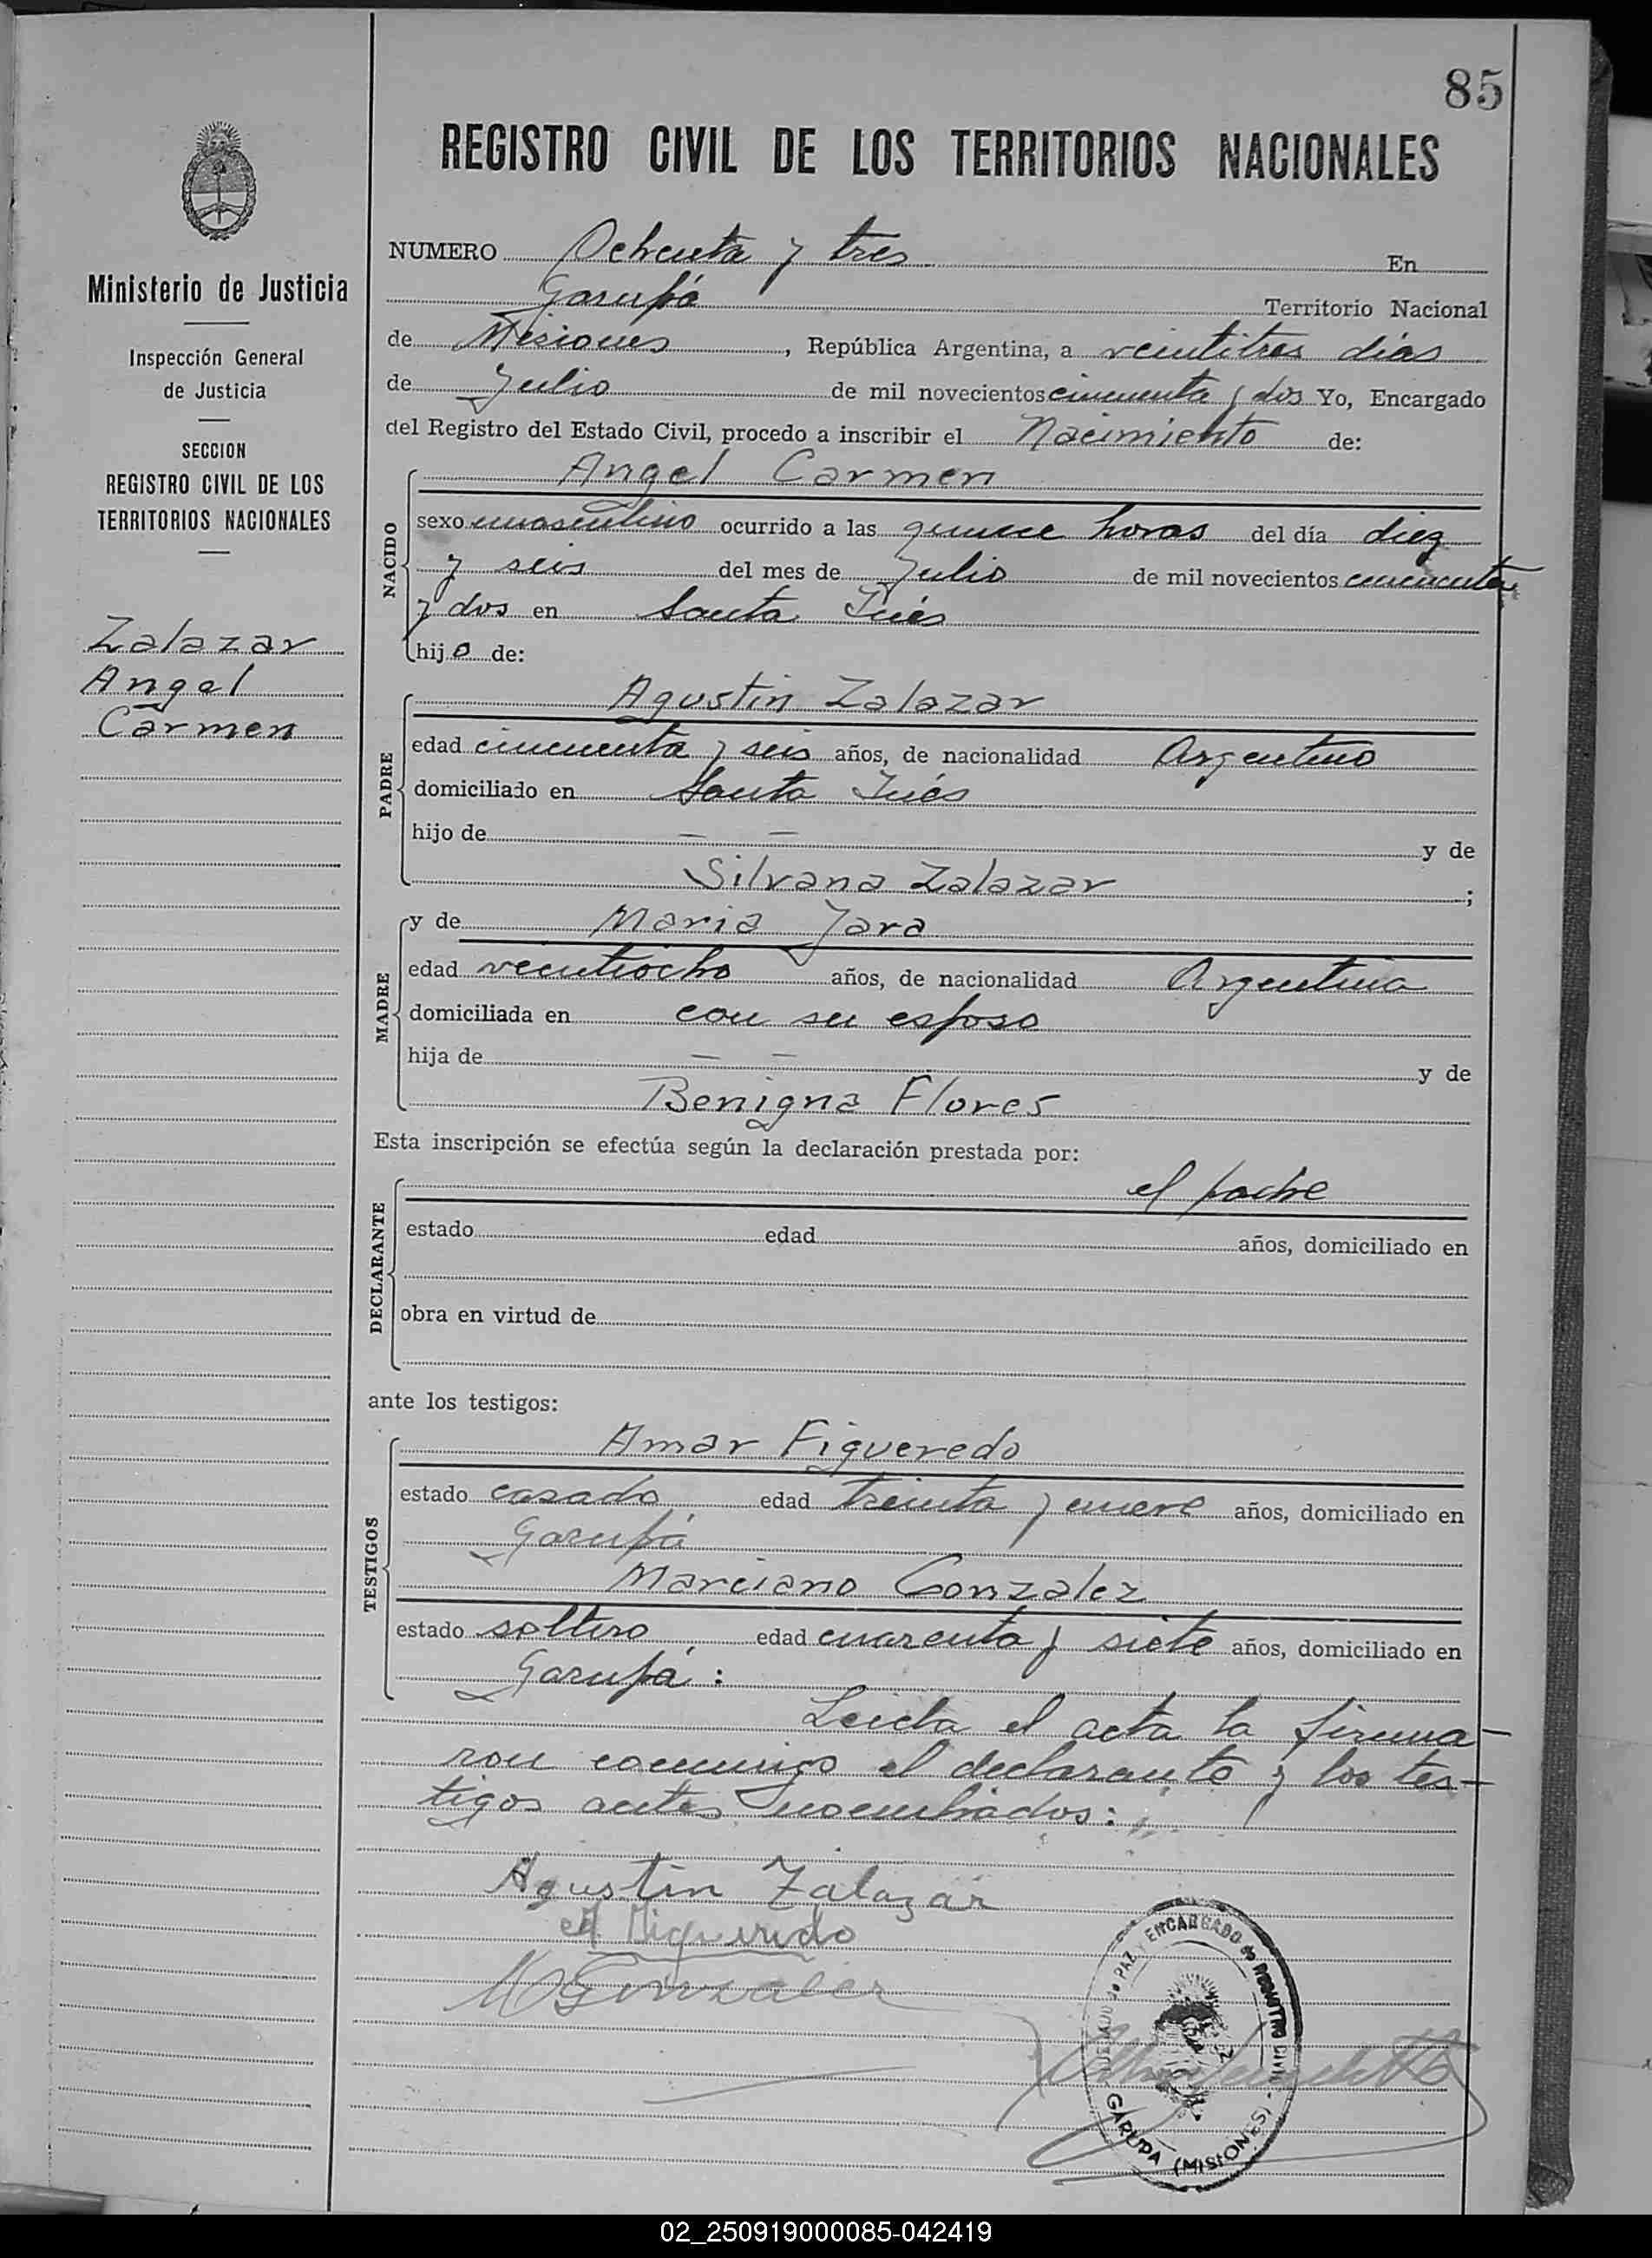 85
REGISTRO CIVIL DE LOS TERRITORIOS NACIONALES
Ministerio de Justicia
Inspección General
de Justicia
SECCION
REGISTRO CIVIL DE LOS
TERRITORIOS NACIONALES
Zalazar
Angel
Carmen
NUMERO Ochenta y tres En
Garupá Territorio Nacional
de Misiones, República Argentina, a veintitres días
de Julio de mil novecientos cincuenta y dos Yo, Encargado
del Registro del Estado Civil, procedo a inscribir el Nacimiento de:
NACIDO
Angel Carmen
sexo masculino ocurrido a las quince horas del día diez
y seis del mes de Julio de mil novecientos cincuenta
y dos en Santa Inés
hijo de:
PADRE
Agustin Zalazar
edad cincuenta y seis años, de nacionalidad Argentino
domiciliado en Santa Inés
hijo de — — y de
Silvana Zalazar ;
MADRE
y de Maria Jara
edad veintiocho años, de nacionalidad Argentina
domiciliada en con su esposo
hija de — — y de
Benigna Flores
Esta inscripción se efectúa según la declaración prestada por:
DECLARANTE
el padre
estado edad años, domiciliado en
obra en virtud de
ante los testigos:
TESTIGOS
Amar Figueredo
estado casado edad treinta y nueve años, domiciliado en
Garupá
Marciano Gonzalez
estado soltero edad cuarenta y siete años, domiciliado en
Garupá:
Leida el acta la firma-
ron conmigo el declarante y los tes-
tigos antes nombrados:
Agustin Zalazar
A Figueredo
M Gonzalez
JUZGADO DE PAZ Y ENCARGADO DE REGISTRO CIVIL - GARUPA (MISIONES)
02_250919000085-042419